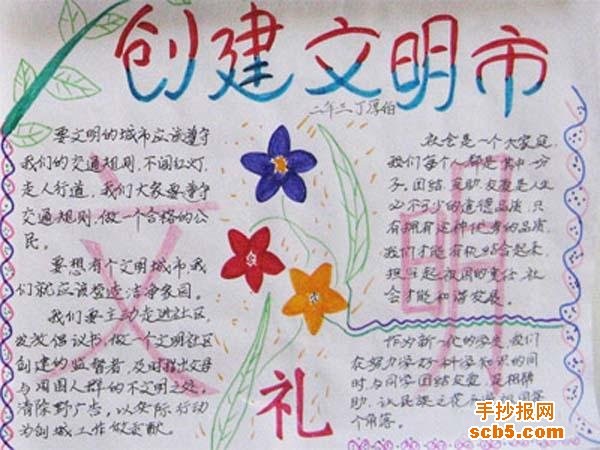 创建文明市
二年三 丁淳怡
要文明的城市应该遵守
我们的交通规则,不闯红灯,
走人行道,我们大家要遵守
交通规则,做一个合格的公
民。
要想有个文明城市我
们就应该营造洁净家园。
我们要主动走进社区,
发放倡议书,做一个文明社区
创建的监督者,及时指出父母
与周围人群的不文明之处,
清除野广告,以实际行动
为创城工作做贡献。
文
明
礼
社会是一个大家庭,
我们每个人都是其中一分
子,团结、互助、友爱是人生
必不可少的道德品质,只
有拥有这种优秀的品质,
我们才能有机结合起来,
担起祖国的责任,社
会才能和谐发展。
作为新一代的学生,我们
在努力学好科学知识的同
时与同学团结友爱,互相帮
助,让民族之花
个角落。
手抄报网
scb5.com